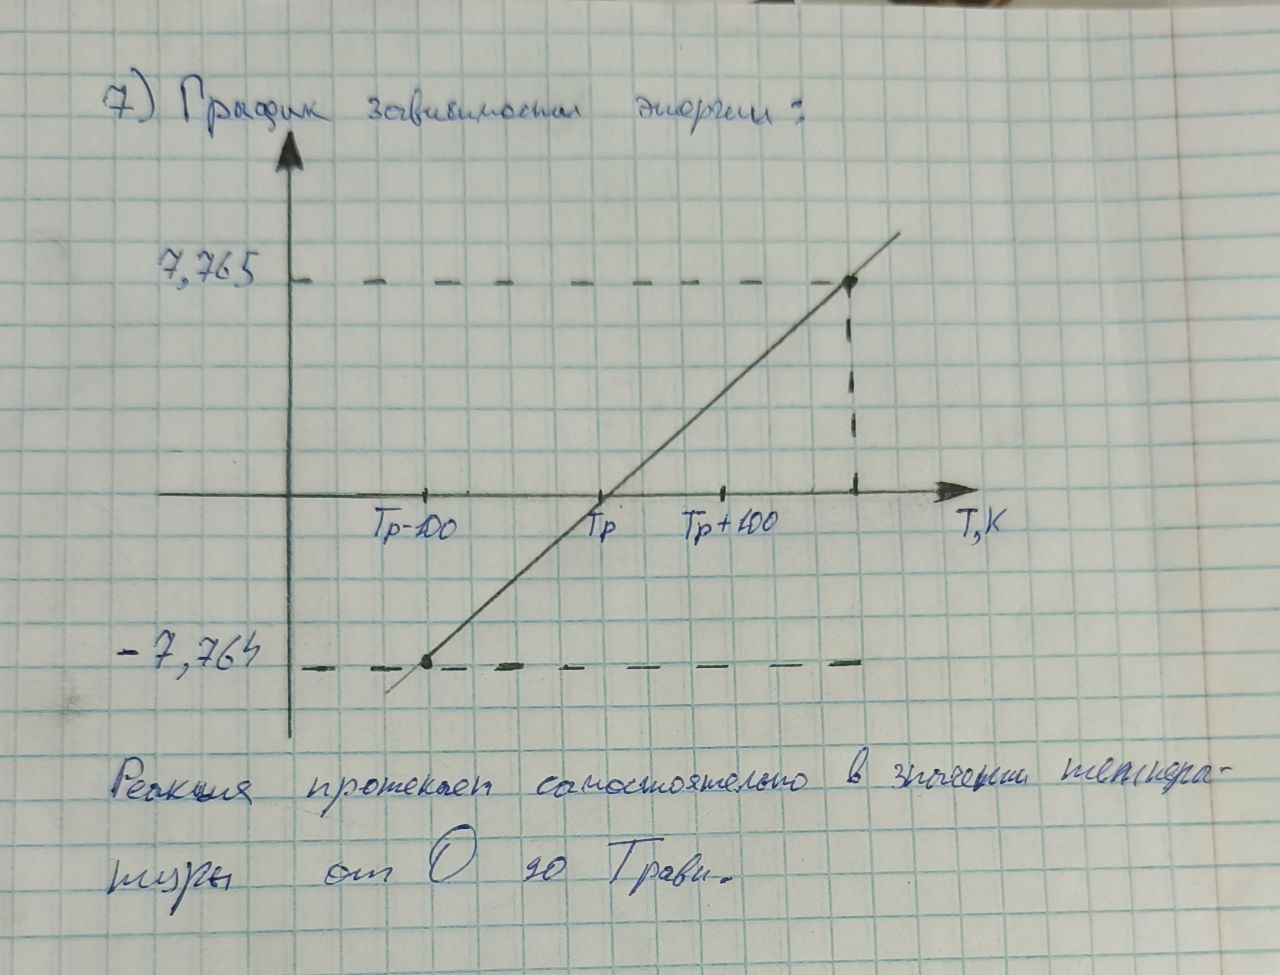 7) График зависимости энергии:
7,765
Тр-100 Тр Тр+100 Т,К
-7,764
Реакция протекает самостоятельно в значении темпера-
туры от 0 до Травн.